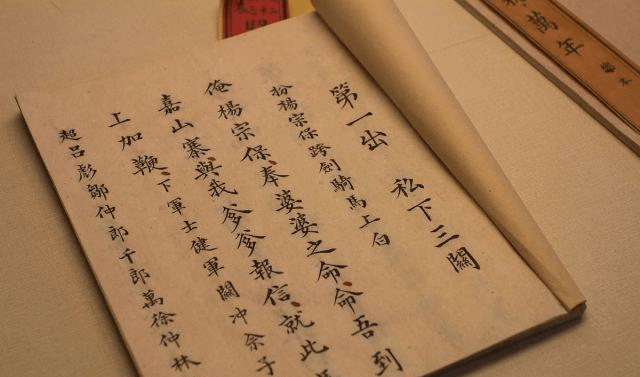 萬年
第一出 私下三關
扮楊宗保跨劍騎馬上白
俺楊宗保奉婆婆之命命吾到
嘉山寨與我爹爹報信就此
上加鞭下軍士健軍關冲佘子
超呂彪鄒仲郎千郎萬徐仲林